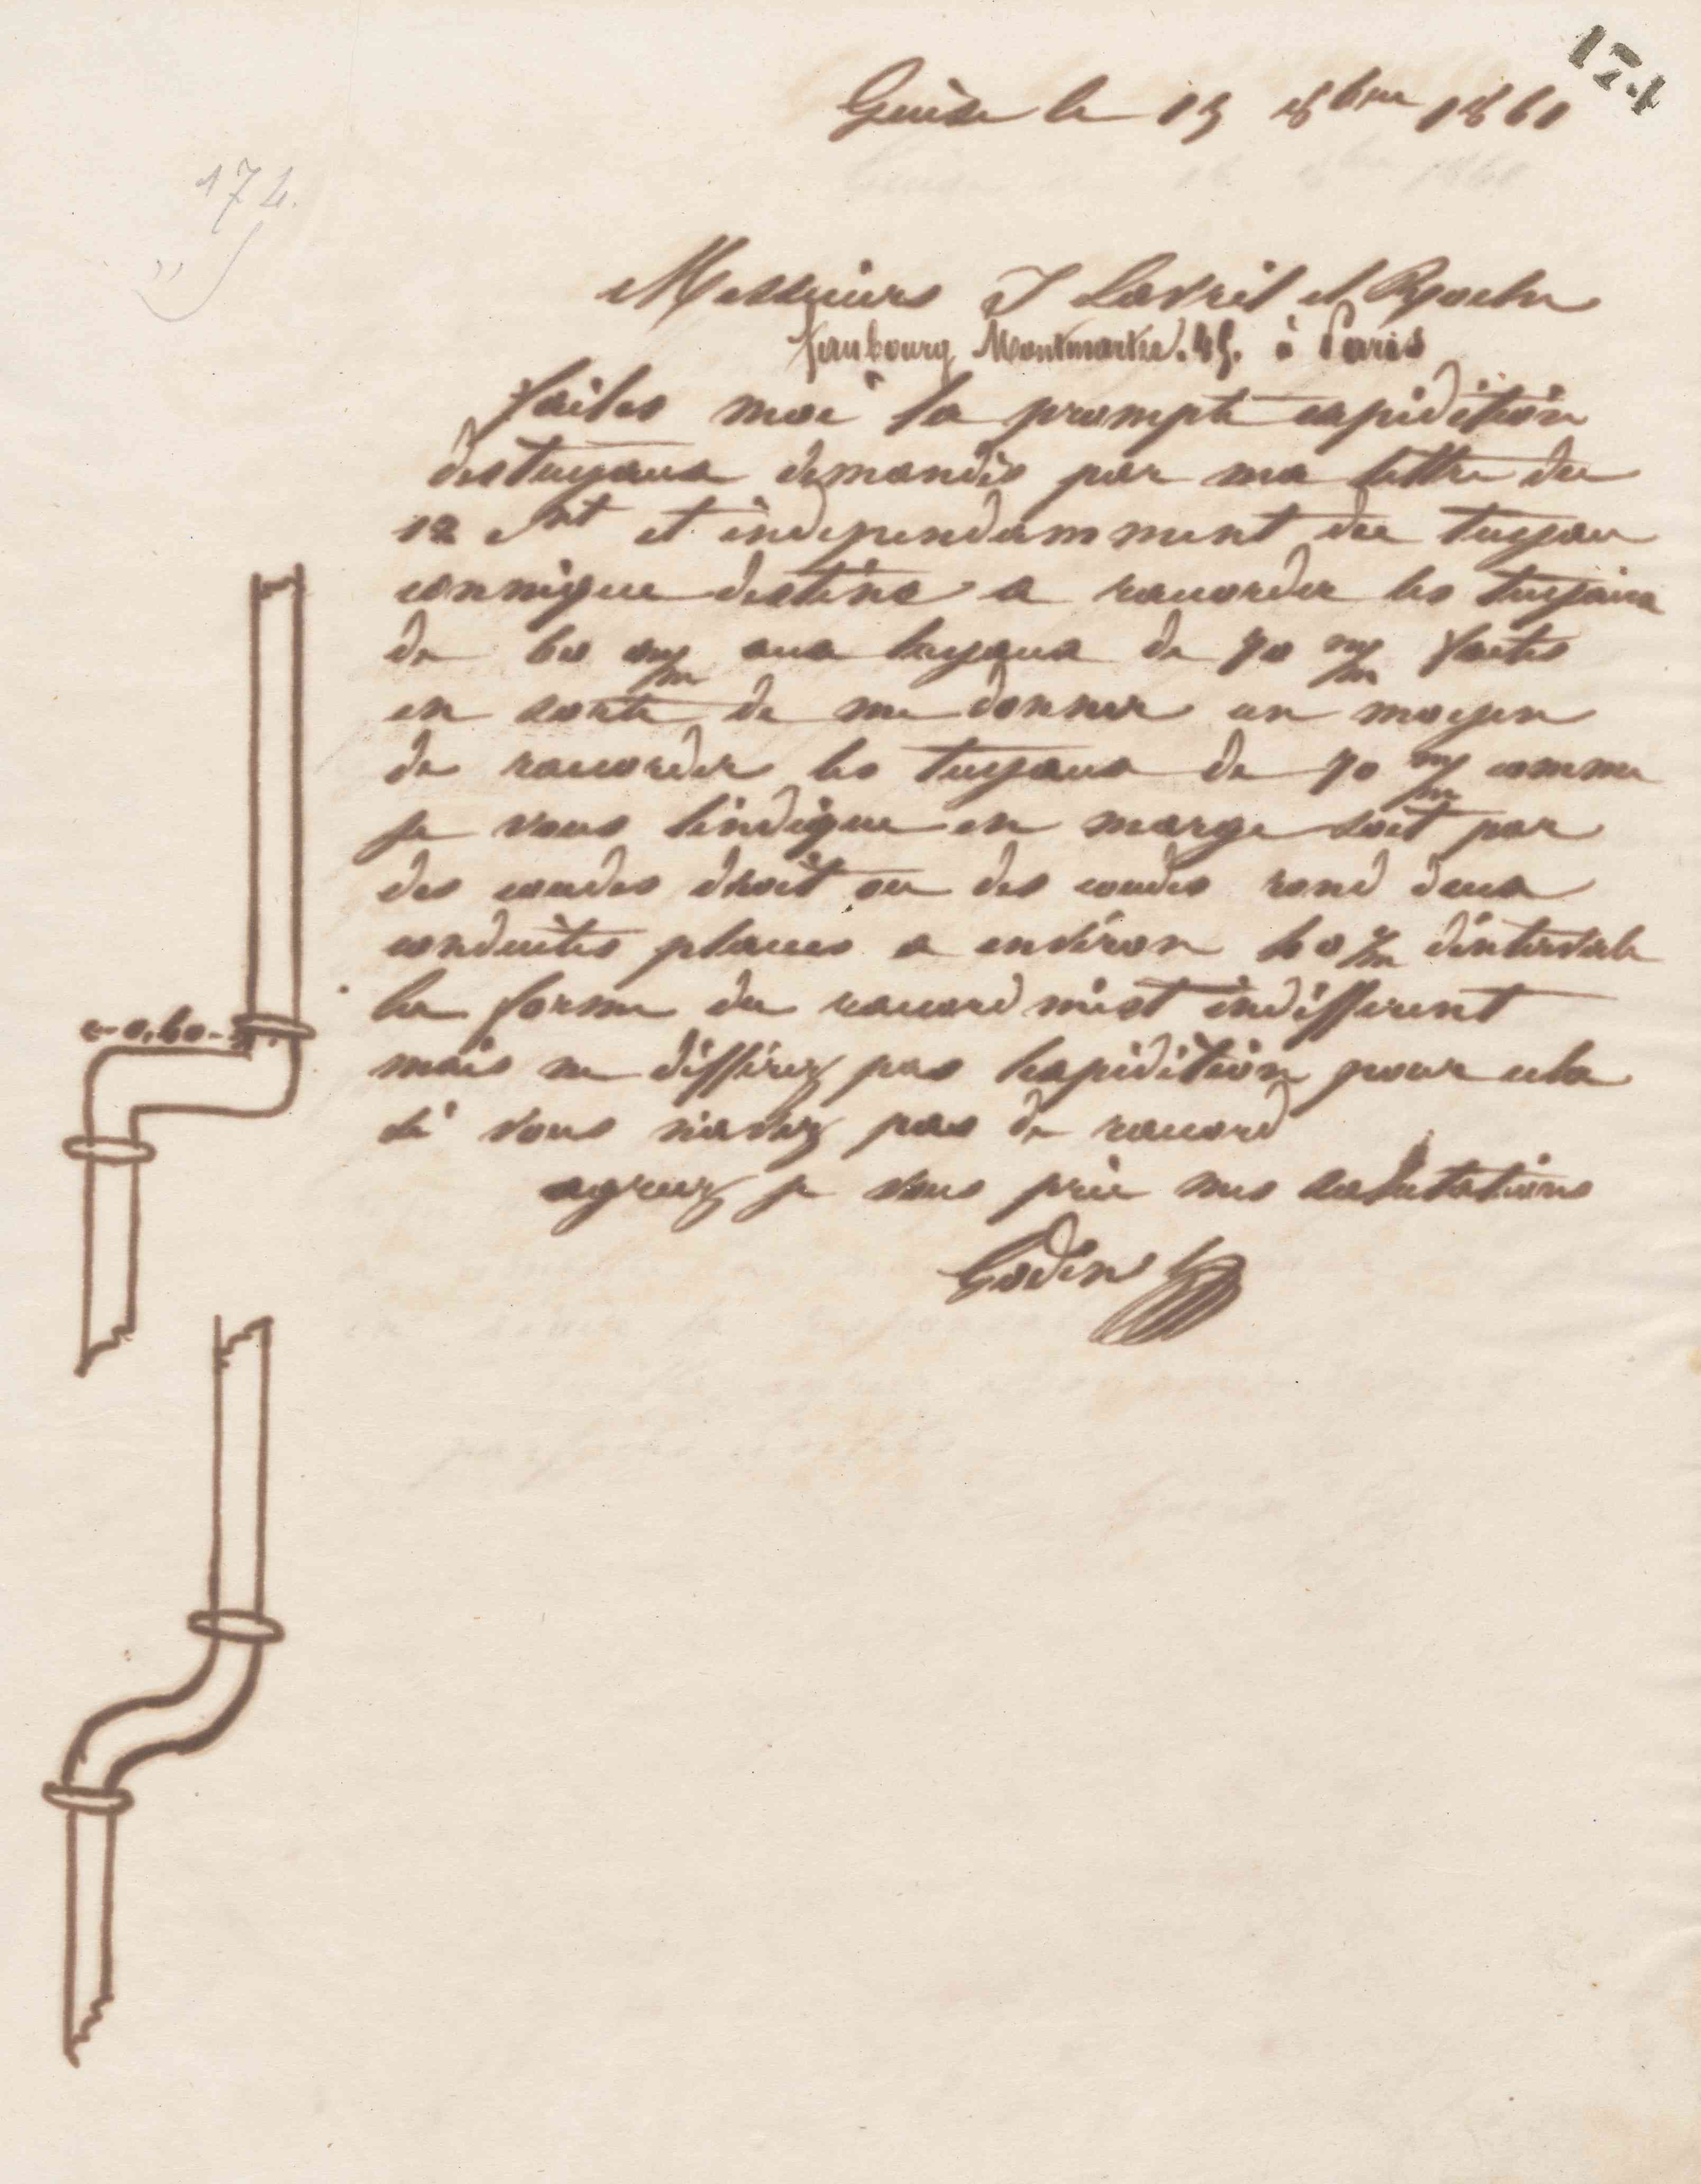 174
Guise le 15 8bre 1861
174.
Messieurs J Lavril et
faubourg Montmartre. 45. à Paris
faites moi la prompte expidition
des tuyaux demandés par ma lettre du
12 et indépendamment du tuyau
connique destiné a racorder les tuyaux
de 60 m/m aux tuyaux de 70 m/m faites
en sorte de me donner un moyen
de racorder les tuyaux de 70 m/m comme
je vous lindique en marge soit par
des coudes droit ou des coudes rond deux
conduites places a environ 60 c/m dintervale
la forme du racord mest indifferent
mais ne differez pas lexpidition pour cela
si vous navez pas de racord
agreez je vous prie mes salutations
Godin
0,60